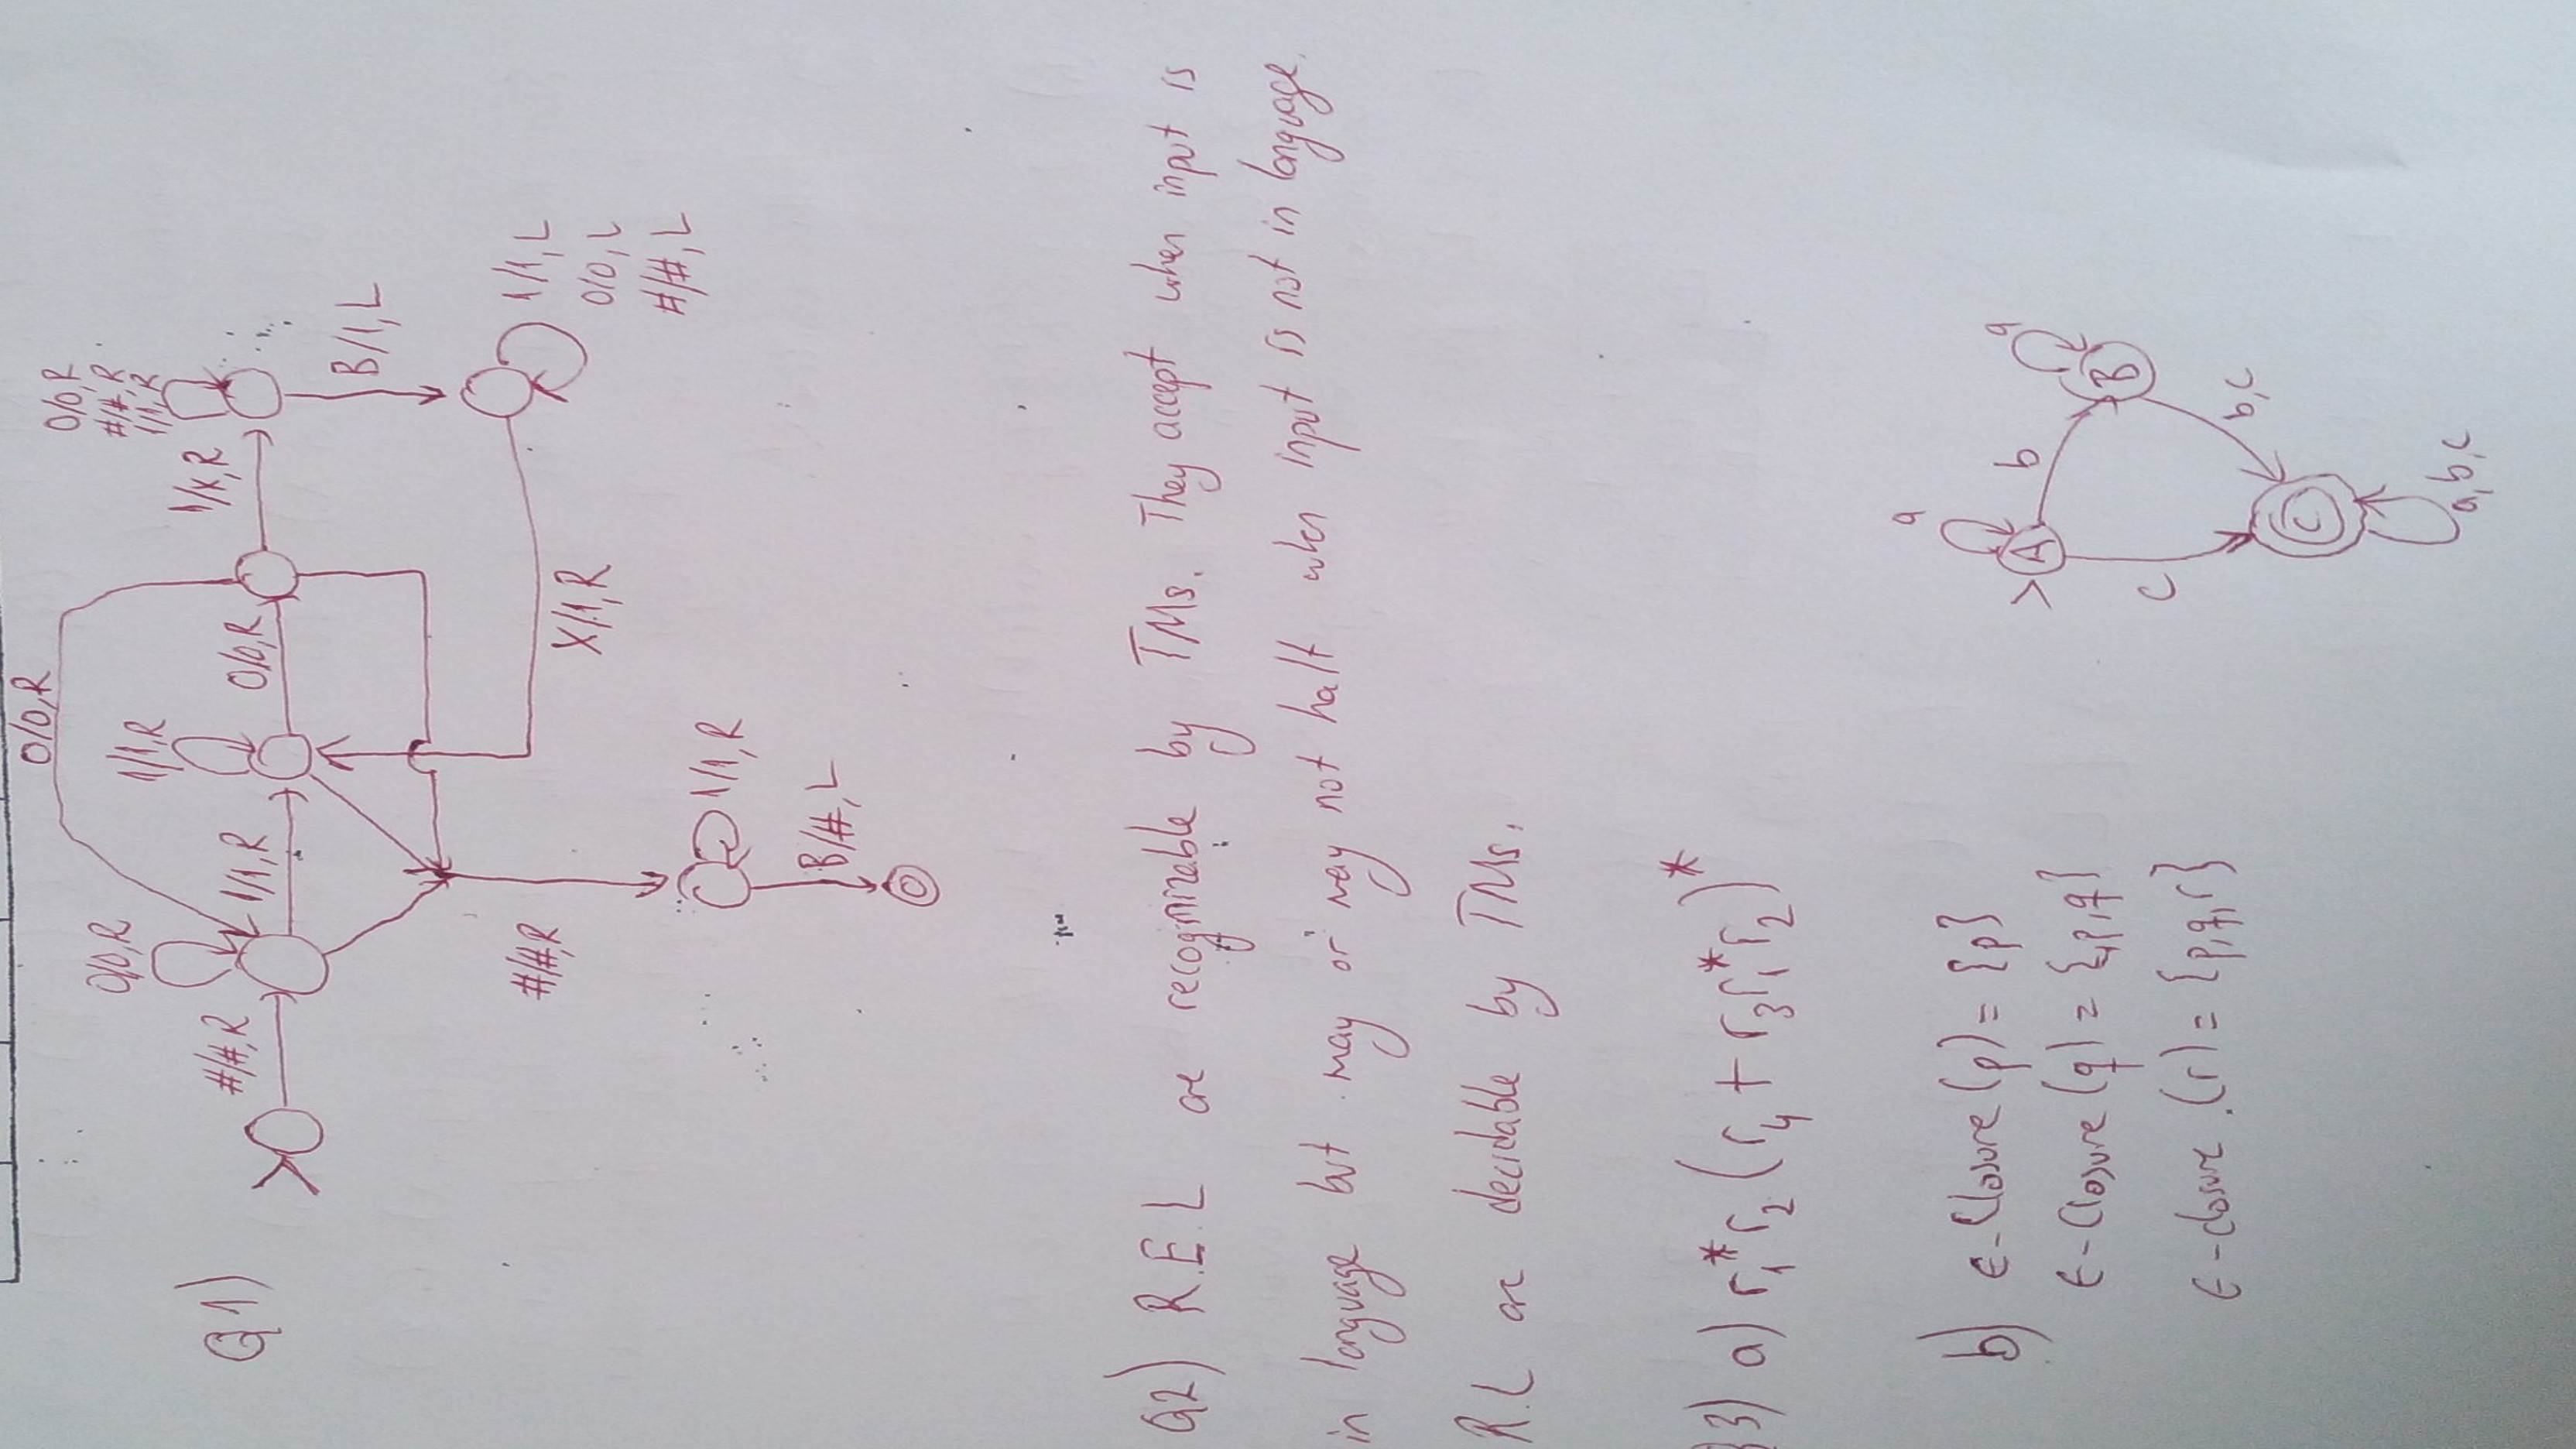 0/0,R
0/0,R
#/#,R
1/1,R
0/0,R
1/1,R
Q1)
#/#,R
1/1,R
0/0,R
1/X,R
B/1,L
#/#,R
X/1,R
1/1,L
0/0,L
#/#,L
1/1,R
B/#,L
Q2) R.E.L are recognizable by TMs. They accept when input is
in language but may or may not halt when input is not in language.
R.L are decidable by TMs.
3) a) r₁*r₂(r₄+r₃r₁*r₂)*
b) ε-Closure(p)={p}
ε-Closure(q)={p,q}
ε-closure(r)={p,q,r}
a
A
b
a
B
c
b,c
C
a,b,c